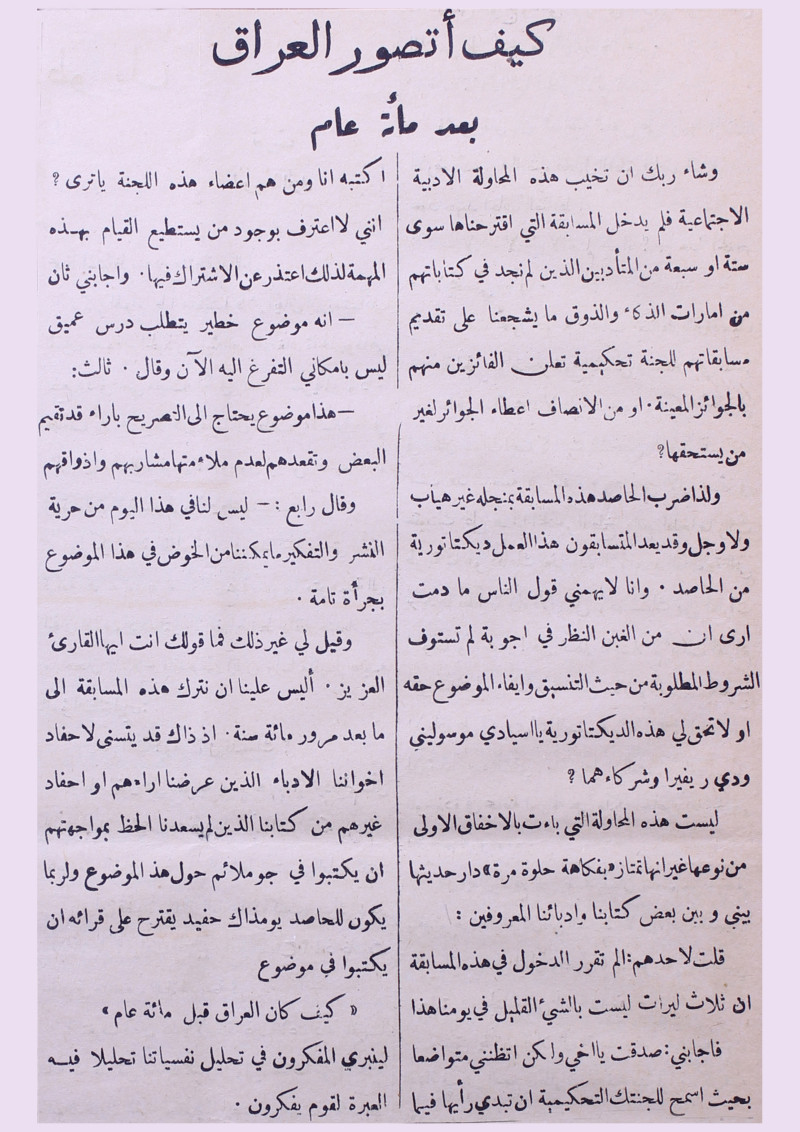 كيف أتصور العراق
بعد مأة عام
وشاء ربك ان تخيب هذه المحاولة الادبية
الاجتماعية فلم يدخل المسابقة التي اقترحناها سوى
ستة او سبعة من المتأدبين الذين لم نجد في كتاباتهم
من امارات الذكاء والذوق ما يشجعنا على تقديم
مسابقاتهم للجنة تحكيمية تعلن الفائزين منهم
بالجوائز المعينة. او من الانصاف اعطاء الجوائز لغير
من يستحقها؟
ولذا ضرب الحاصد هذه المسابقة بمنجله غير هياب
ولا وجل وقد يعد المتسابقون هذا العمل ديكتاتورية
من الحاصد . وانا لا يهمني قول الناس ما دمت
ارى ان من الغبن النظر في اجوبة لم تستوف
الشروط المطلوبة من حيث التنسيق وايفاء الموضوع حقه
او لا تحق لي هذه الديكتاتورية يا اسيادي موسوليني
ودي ريفيرا وشركاءهما ؟
ليست هذه المحاولة التي باءت بالاخفاق الاولى
من نوعها غير انها تمتاز «بفكاهة حلوة مرة» دار حديثها
بيني و بين بعض كتابنا وادبائنا المعروفين :
قلت لاحدهم: الم تقرر الدخول في هذه المسابقة
ان ثلاث ليرات ليست بالشيء القليل في يومنا هذا
فاجابني : صدقت يا اخي ولكن اتظنني متواضعا
بحيث اسمح للجنتك التحكيمية ان تبدي رأيها فيما
اكتبه انا ومن هم اعضاء هذه اللجنة ياترى ؟
انني لا اعترف بوجود من يستطيع القيام بهذه
المهمة لذلك اعتذر عن الاشتراك فيها. واجابني ثان
— انه موضوع خطير يتطلب درس عميق
ليس بامكاني التفرغ اليه الآن وقال . ثالث:
— هذا موضوع يحتاج الى التصريح باراء قد تقيم
البعض وتقعدهم لعدم ملاءمتها مشاربهم واذواقهم
وقال رابع : — ليس لنا في هذا اليوم من حرية
النشر والتفكير ما يمكننا من الخوض في هذا الموضوع
بجرأة تامة .
وقيل لي غير ذلك فما قولك انت ايها القارئ
العزيز . أليس علينا ان نترك هذه المسابقة الى
ما بعد مرور مائة سنة. اذ ذاك قد يتسنى لاحفاد
اخواننا الادباء الذين عرضنا اراءهم او احفاد
غيرهم من كتابنا الذين لم يسعدنا الحظ بمواجهتهم
ان يكتبوا في جو ملائم حول هذ الموضوع ولربما
يكون للحاصد يومذاك حفيد يقترح على قرائه ان
يكتبوا في موضوع
« كيف كان العراق قبل مائة عام »
لينبري المفكرون في تحليل نفسياتنا تحليلا فيه
العبرة لقوم يفكرون .